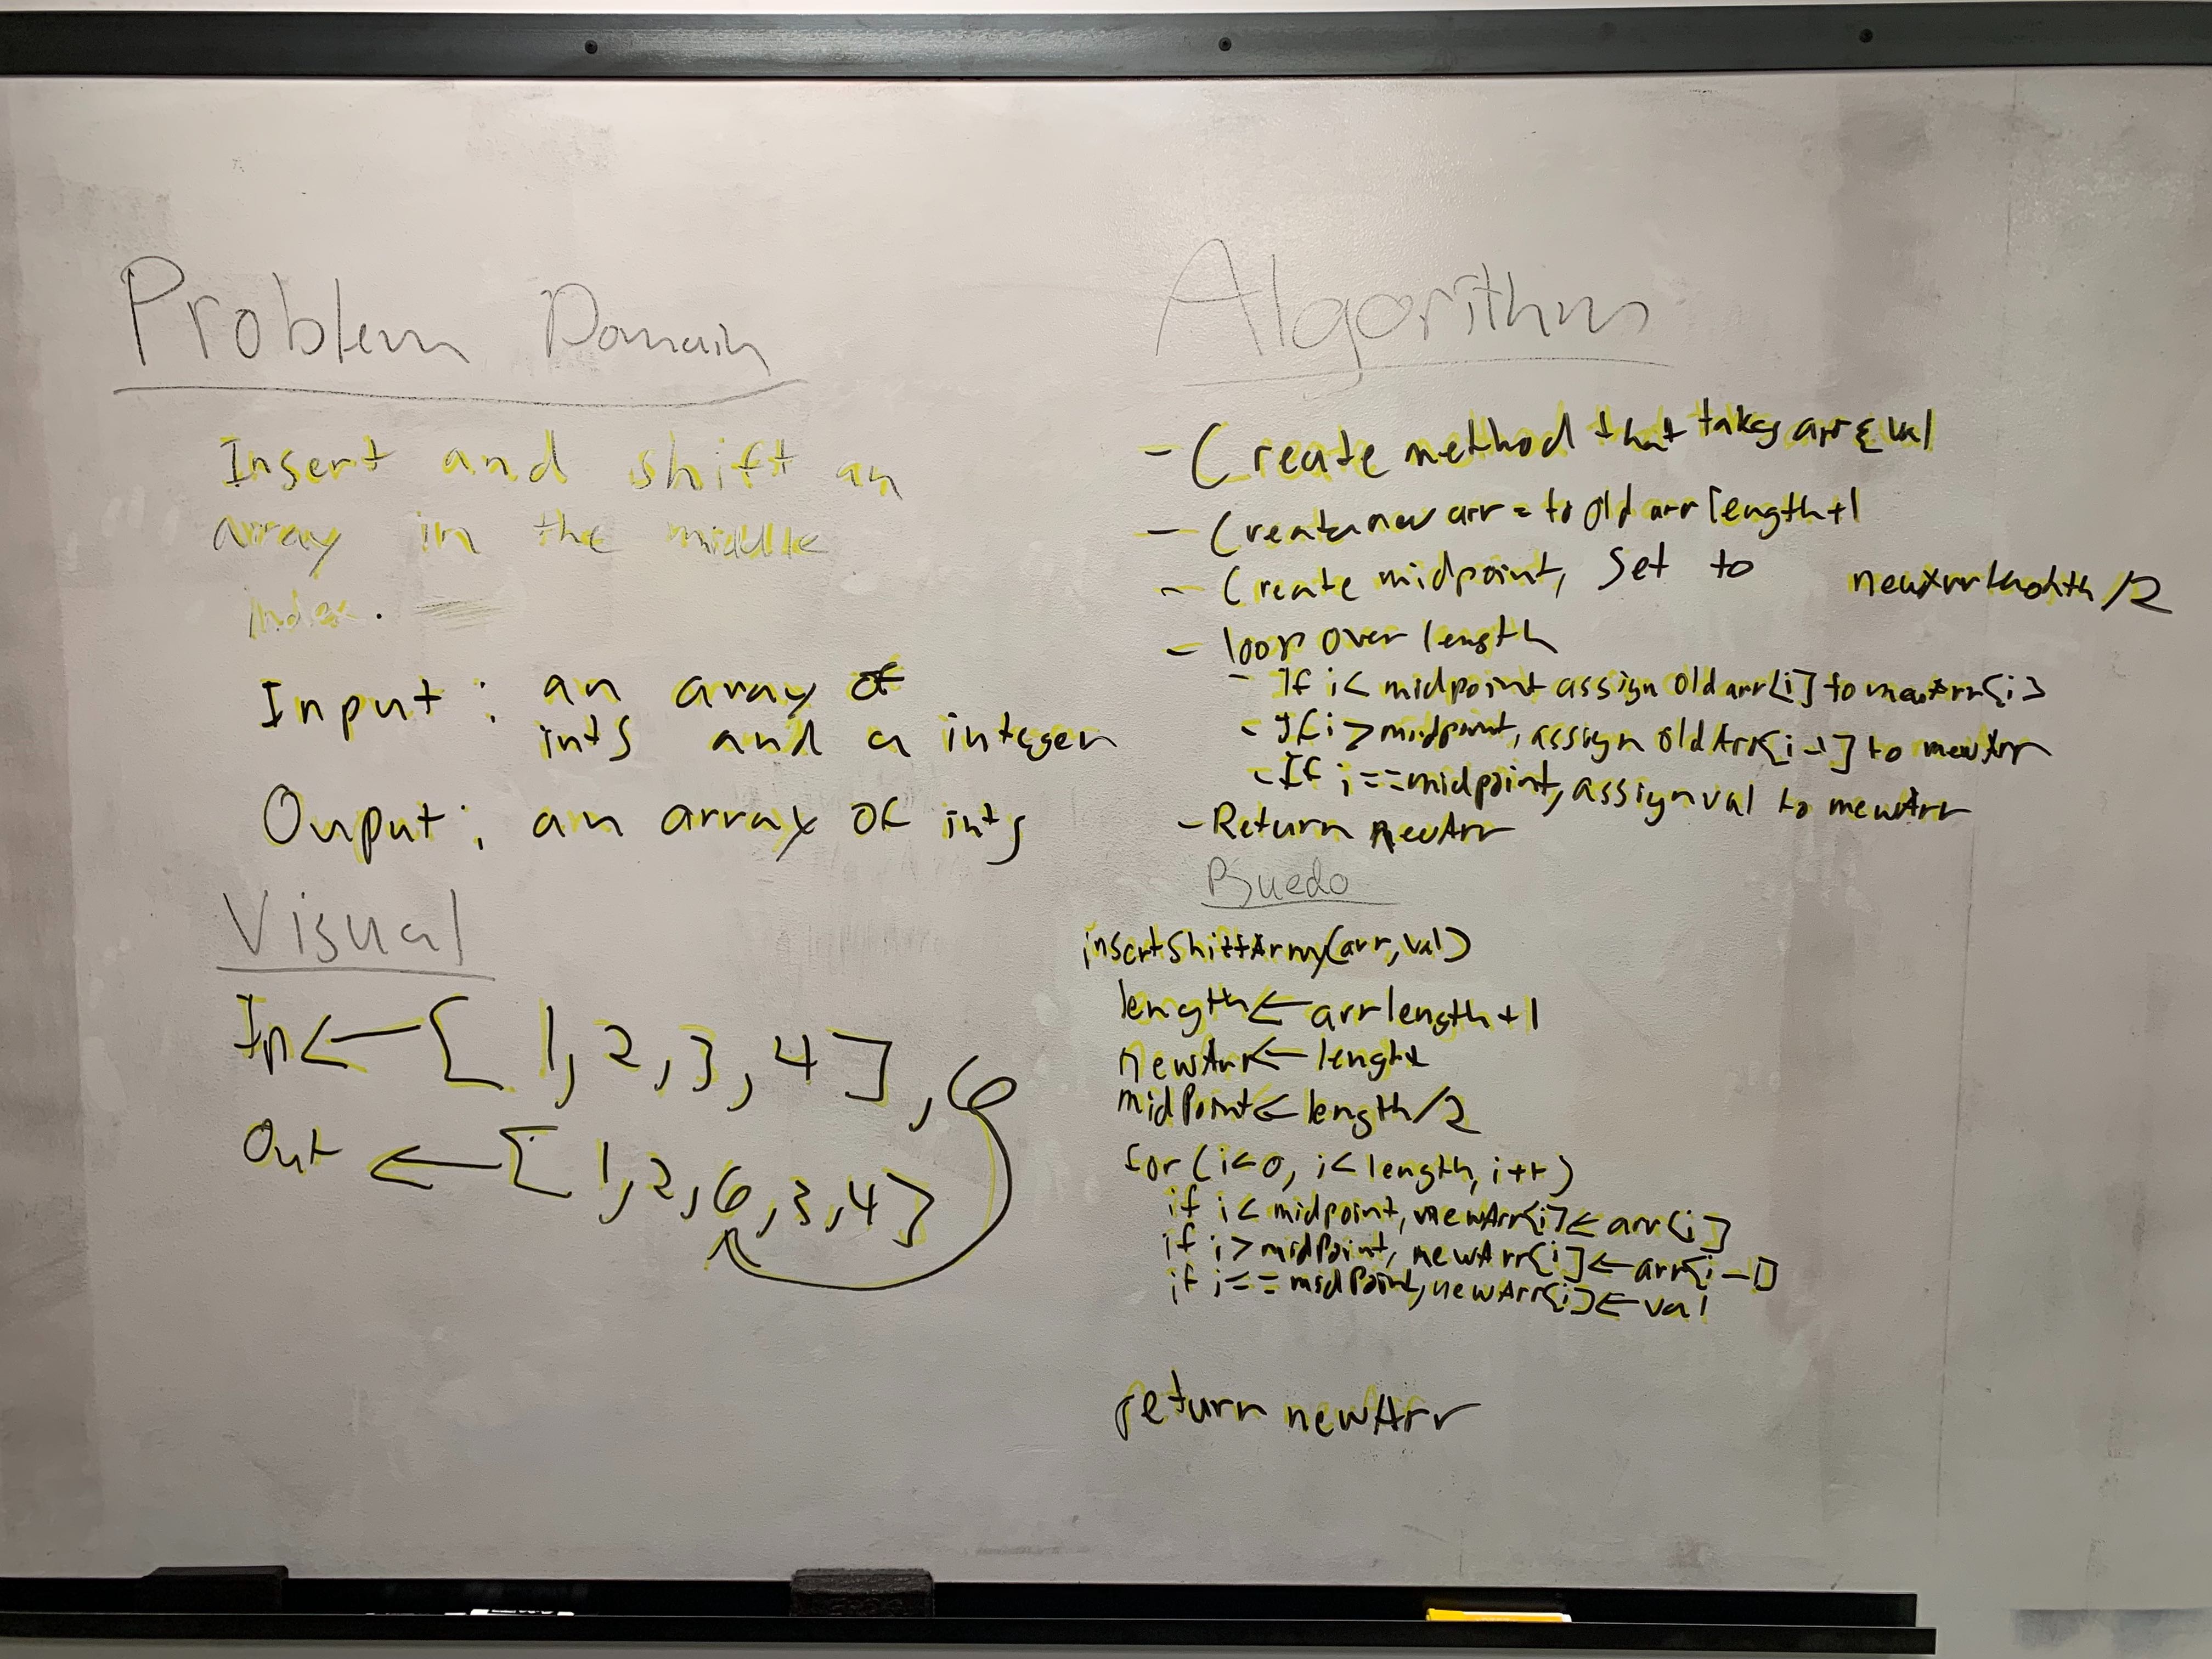 Problem Domain
Insert and shift an
array in the middle
index.
Input: an array of
ints and a integer
Ouput: an array of ints
Visual
In ← [ 1, 2, 3, 4 ], 6
Out ← [ 1, 2, 6, 3, 4 ]
Algorithm
- Create method that takes arr & val
- Create new arr = to old arr length+1
- Create midpoint, Set to newArrLength/2
- loop over length
- If i < midpoint assign oldarr[i] to newArr[i]
- If i > midpoint, assign oldArr[i-1] to newArr
- If i == midpoint, assign val to newArr
- Return newArr
insertShiftArray(arr, val)
length ← arr length + 1
newArr ← length
midPoint ← length/2
for (i ← 0, i < length, i++)
if i < midpoint, newArr[i] ← arr[i]
if i > midPoint, newArr[i] ← arr[i-1]
if i == midPoint, newArr[i] ← val
return newArr